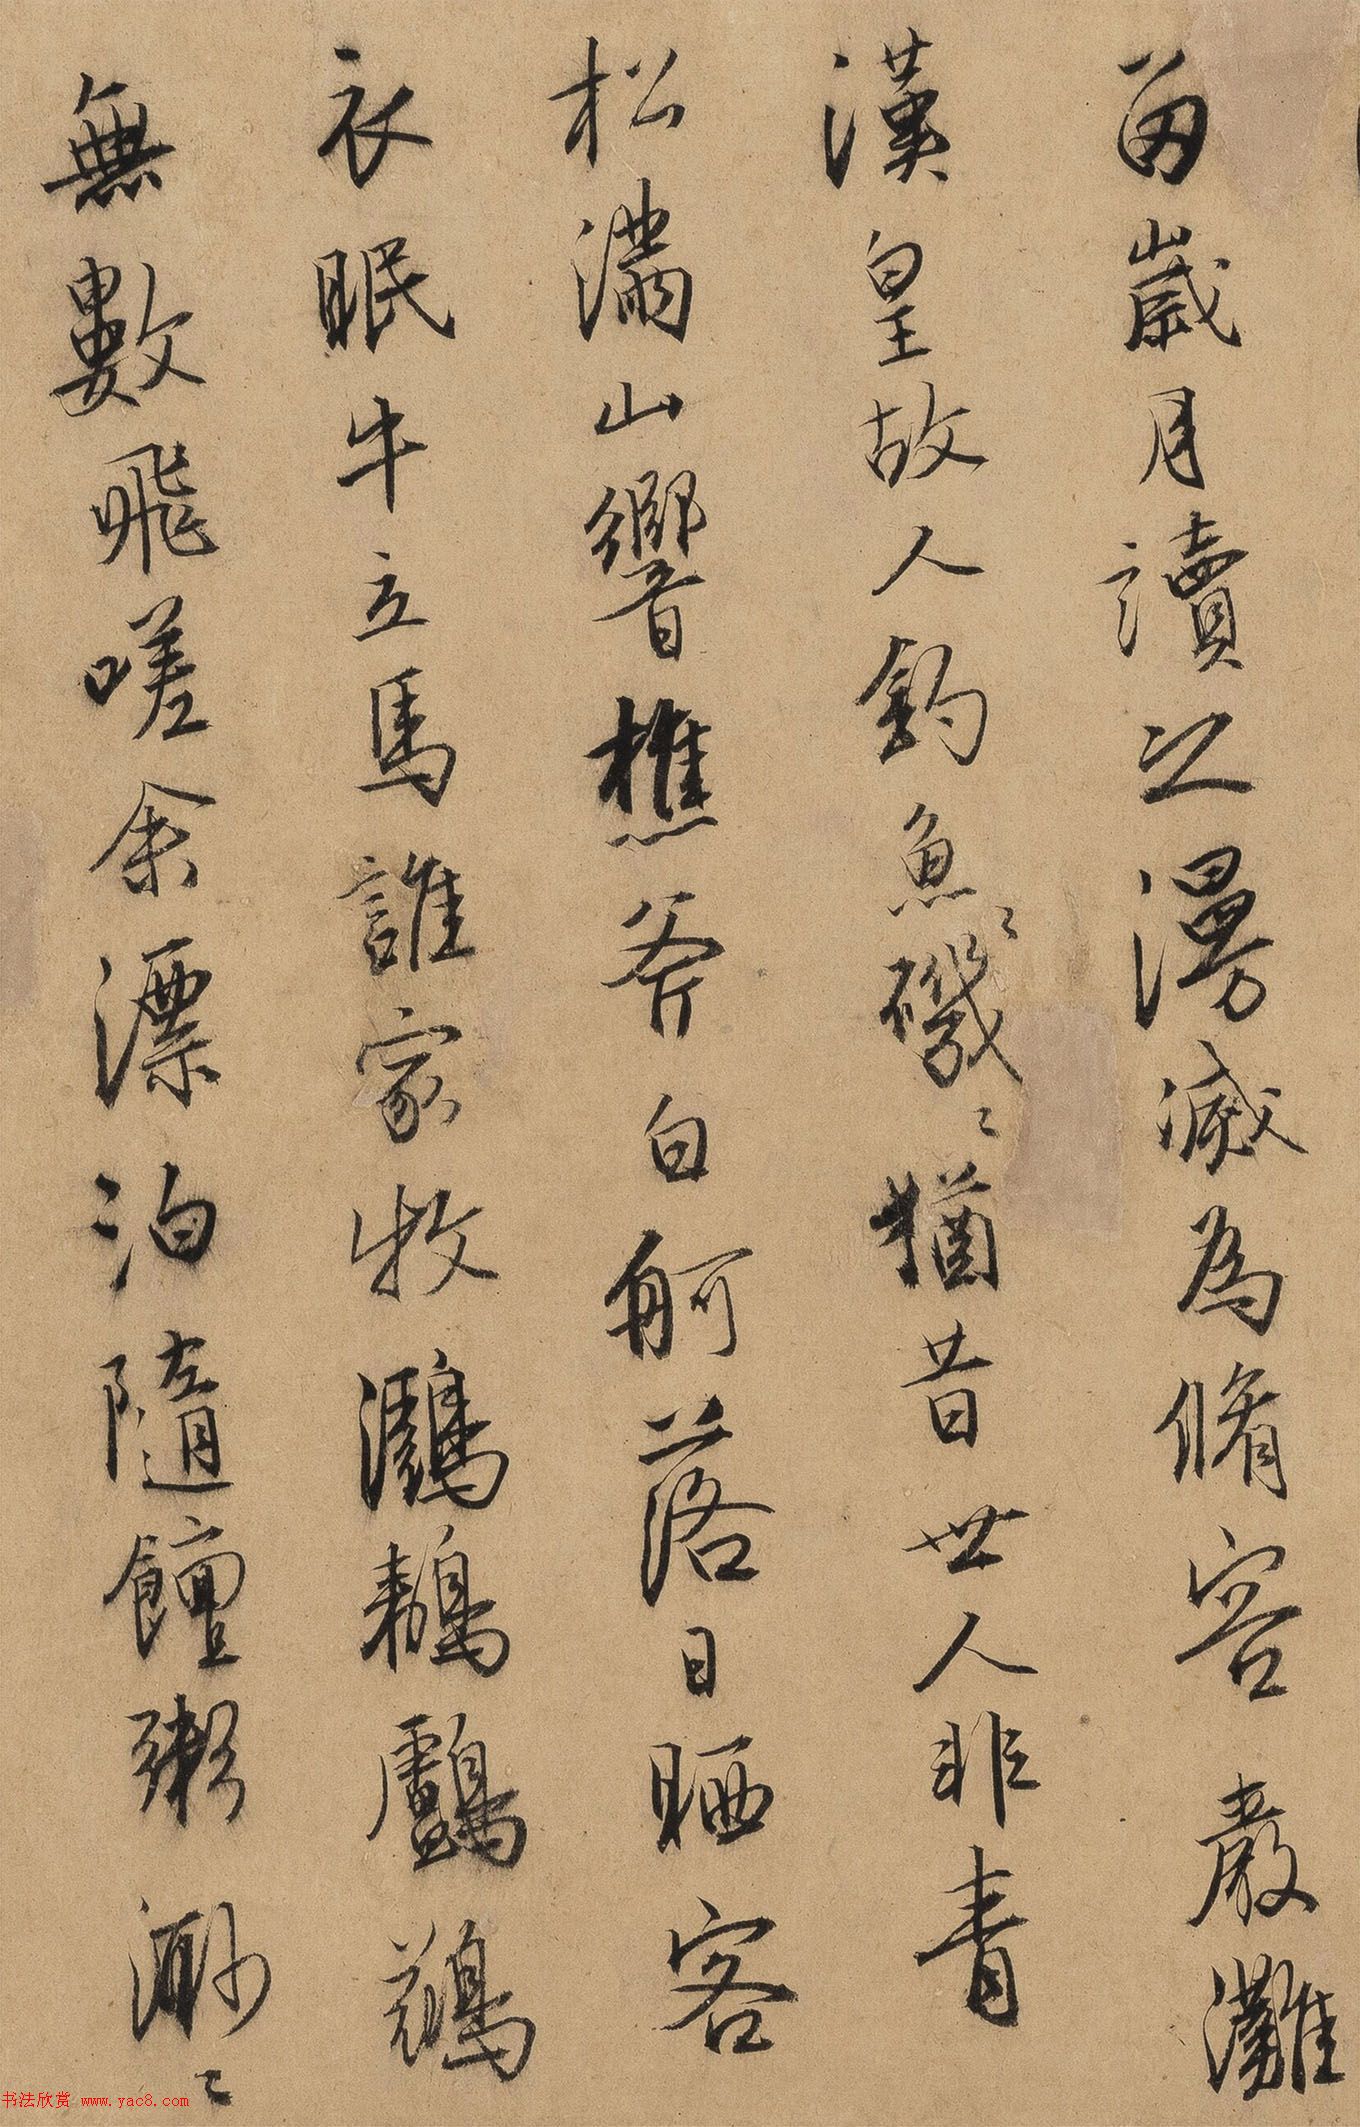 留歲月讀之漫滅為脩容嚴灘
漢皇故人釣魚〻磯〻猶昔世人非青
松滿山響樵斧白舸落日曬客
衣眠牛立馬誰家牧鸂鶒鸕鷀
無數飛嗟余漂泊隨饘粥渺〻
书法欣赏 www.yac8.com